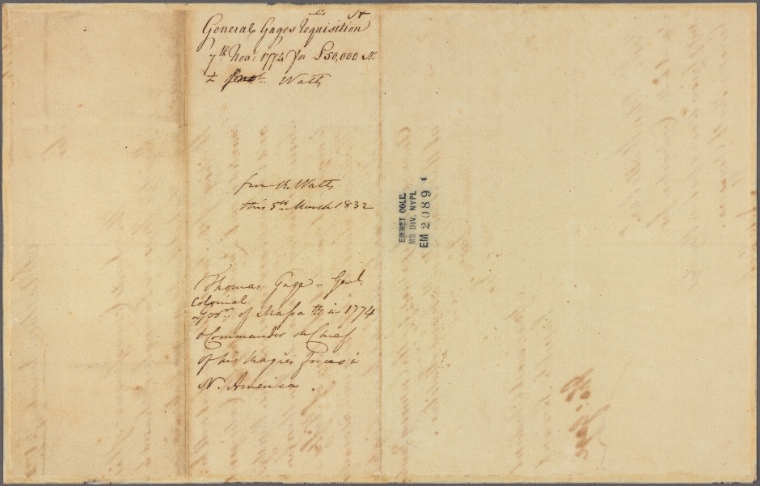 General Gages requisition
7th Nov: 1774 for £50,000 St.
Watts
from Mr Watts
this 5th March 1832
Thomas Gage - Genl.
Colonial
Govr. of Massa in 1774
& Commander in Chief
of his Majies Forces in
N. America.
EMMET COLL.
MS DIV. NYPL
EM 2089